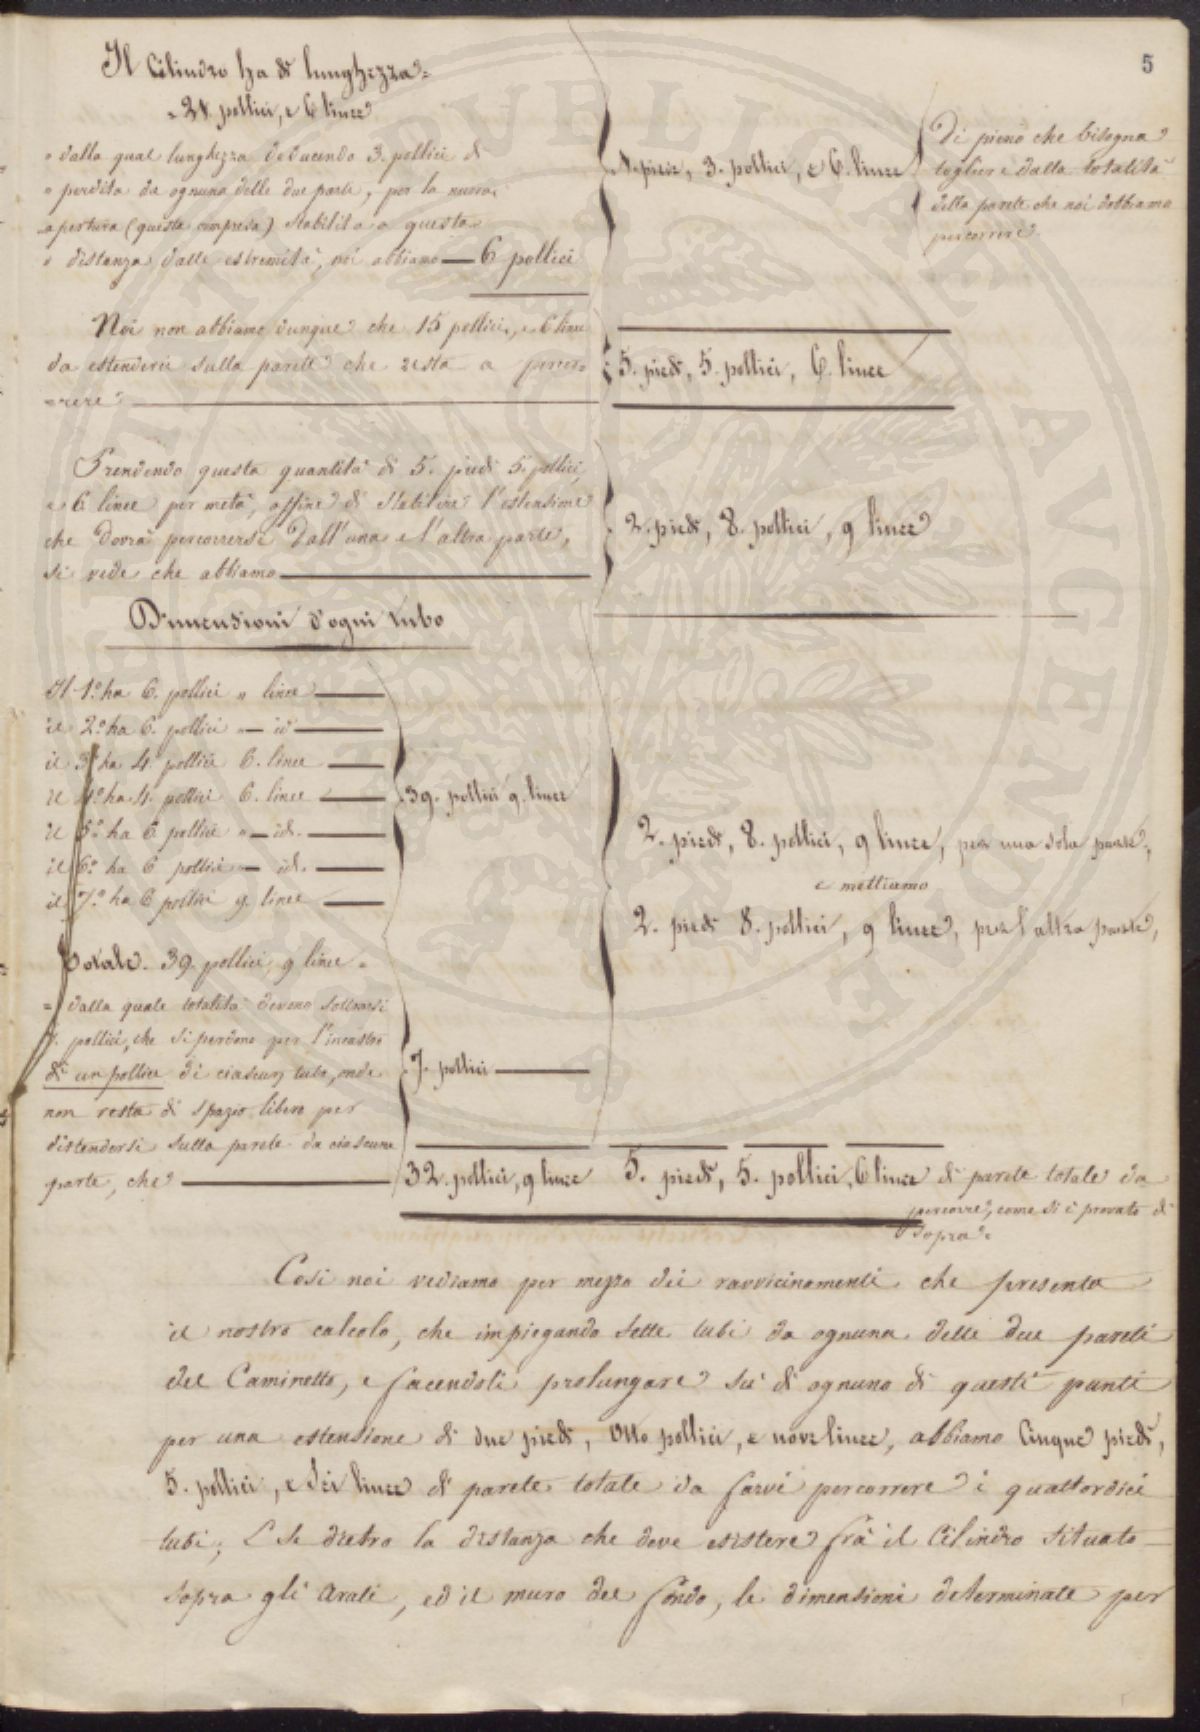 5
Il Cilindro ha di lunghezza =
= 21. pollici, e 6 linee
= dalla qual lunghezza deducendo 3. pollici di
= perdita da ognuna delle due parti, per la nuova
= apertura (questa compresa) stabilita a questa
= distanza dalle estremità, noi abbiamo — 6 pollici
1. piede, 3. pollici, e 6. linee
Di pieno che bisogna
togliere dalla totalità
della parete che noi dobbiamo
percorrere.
Noi non abbiamo dunque che 15 pollici, e 6 linee
da estendere sulla parete che resta a percor=
=rere
5. piedi, 5. pollici, 6. linee
Prendendo questa quantità di 5. piedi 5. pollici,
e 6 linee per metà, affine di stabilire l'estensione
che dovrà percorrersi dall'una e l'altra parte,
si vede che abbiamo
2. piedi, 8. pollici, 9 linee
Dimensioni d'ogni tubo
Il 1.º ha 6. pollici „ linee
il 2.º ha 6. pollici „ — id
il 3.º ha 4. pollici 6. linee
il 4.º ha 4. pollici 6. linee
il 5.º ha 6 pollici „ — id.
il 6.º ha 6 pollici — id.
il 7.º ha 6 pollici 9. linee
39. pollici 9. linee
2. piedi, 8. pollici, 9 linee, per una sola parte,
e mettiamo
2. piedi 8. pollici, 9 linee, per l'altra parte,
Totale. 39. pollici, 9 linee =
= dalla quale totalità devono sottrarsi
7. pollici, che si perdono per l'incastro
di un pollice di ciascun tubo, onde
non resta di spazio libero per
distendersi sulla parete da ciascuna
parte, che
7. pollici
32. pollici, 9 linee
5. piedi, 5. pollici, 6 linee di parete totale da
percorrere, come si è provato di
sopra.
Così noi vediamo per mezzo dei ravvicinamenti che presenta
il nostro calcolo, che impiegando sette tubi da ognuna delle due pareti
del Caminetto, e facendoli prolungare su di ognuno di questi punti
per una estensione di due piedi, otto pollici, e nove linee, abbiamo Cinque piedi,
5. pollici, e sei linee di parete totale da farvi percorrere i quattordici
tubi; E se dietro la distanza che deve esistere frà il Cilindro situato
sopra gli Arali, ed il muro del fondo, le dimensioni determinate per